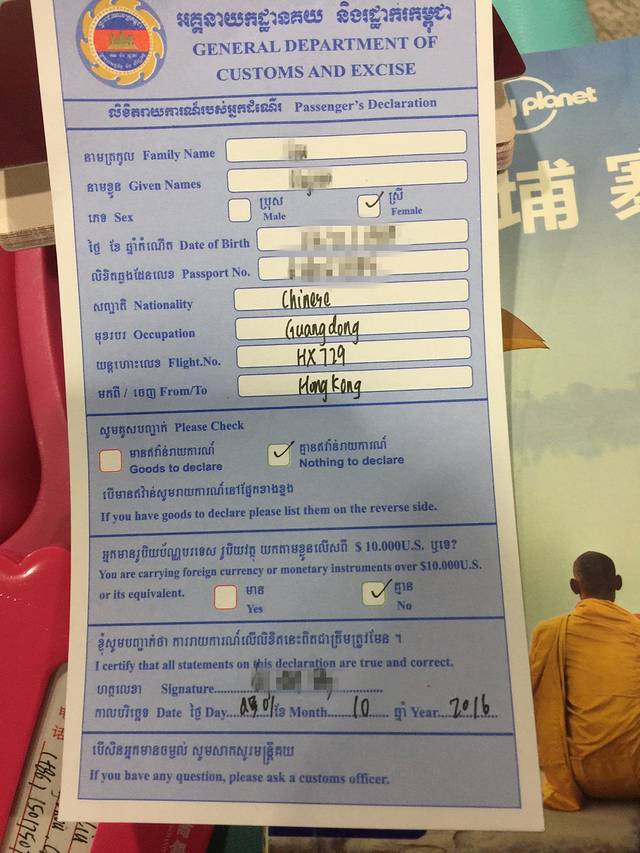 អគ្គនាយកដ្ឋានគយ និងរដ្ឋាករកម្ពុជា
GENERAL DEPARTMENT OF
CUSTOMS AND EXCISE
លិខិតរាយការណ៍របស់អ្នកដំណើរ Passenger's Declaration
នាមត្រកូល Family Name
នាមខ្លួន Given Names
ភេទ Sex ប្រុស Male ✓ ស្រី Female
ថ្ងៃ ខែ ឆ្នាំកំណើត Date of Birth
លិខិតឆ្លងដែនលេខ Passport No.
សញ្ជាតិ Nationality Chinese
មុខរបរ Occupation Guangdong
យន្តហោះលេខ Flight.No. HX779
មកពី / ចេញ From/To HongKong
សូមគូសបញ្ជាក់ Please Check
មានឥវ៉ាន់រាយការណ៍ ✓ គ្មានឥវ៉ាន់រាយការណ៍
Goods to declare Nothing to declare
បើមានឥវ៉ាន់សូមរាយការណ៍នៅផ្នែកខាងខ្នង
If you have goods to declare please list them on the reverse side.
អ្នកមានរូបិយប័ណ្ណបរទេស រូបិយវត្ថុ យកតាមខ្លួនលើសពី $ 10.000U.S. ឬទេ?
You are carrying foreign currency or monetary instruments over $10.000U.S.
or its equivalent. មាន Yes ✓ គ្មាន No
ខ្ញុំសូមបញ្ជាក់ថា ការរាយការណ៍លើលិខិតនេះពិតជាត្រឹមត្រូវមែន ។
I certify that all statements on this declaration are true and correct.
ហត្ថលេខា Signature
កាលបរិច្ឆេទ Date ថ្ងៃ Day ខែ Month 10 ឆ្នាំ Year 2016
បើសិនអ្នកមានចម្ងល់ សូមសាកសួរមន្ត្រីគយ
If you have any question, please ask a customs officer.
planet
埔寨